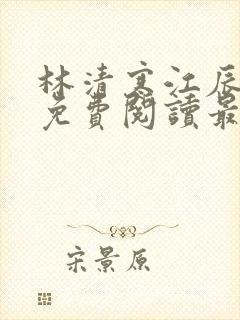 林清寒江辰
免費閱讀最
宋景原